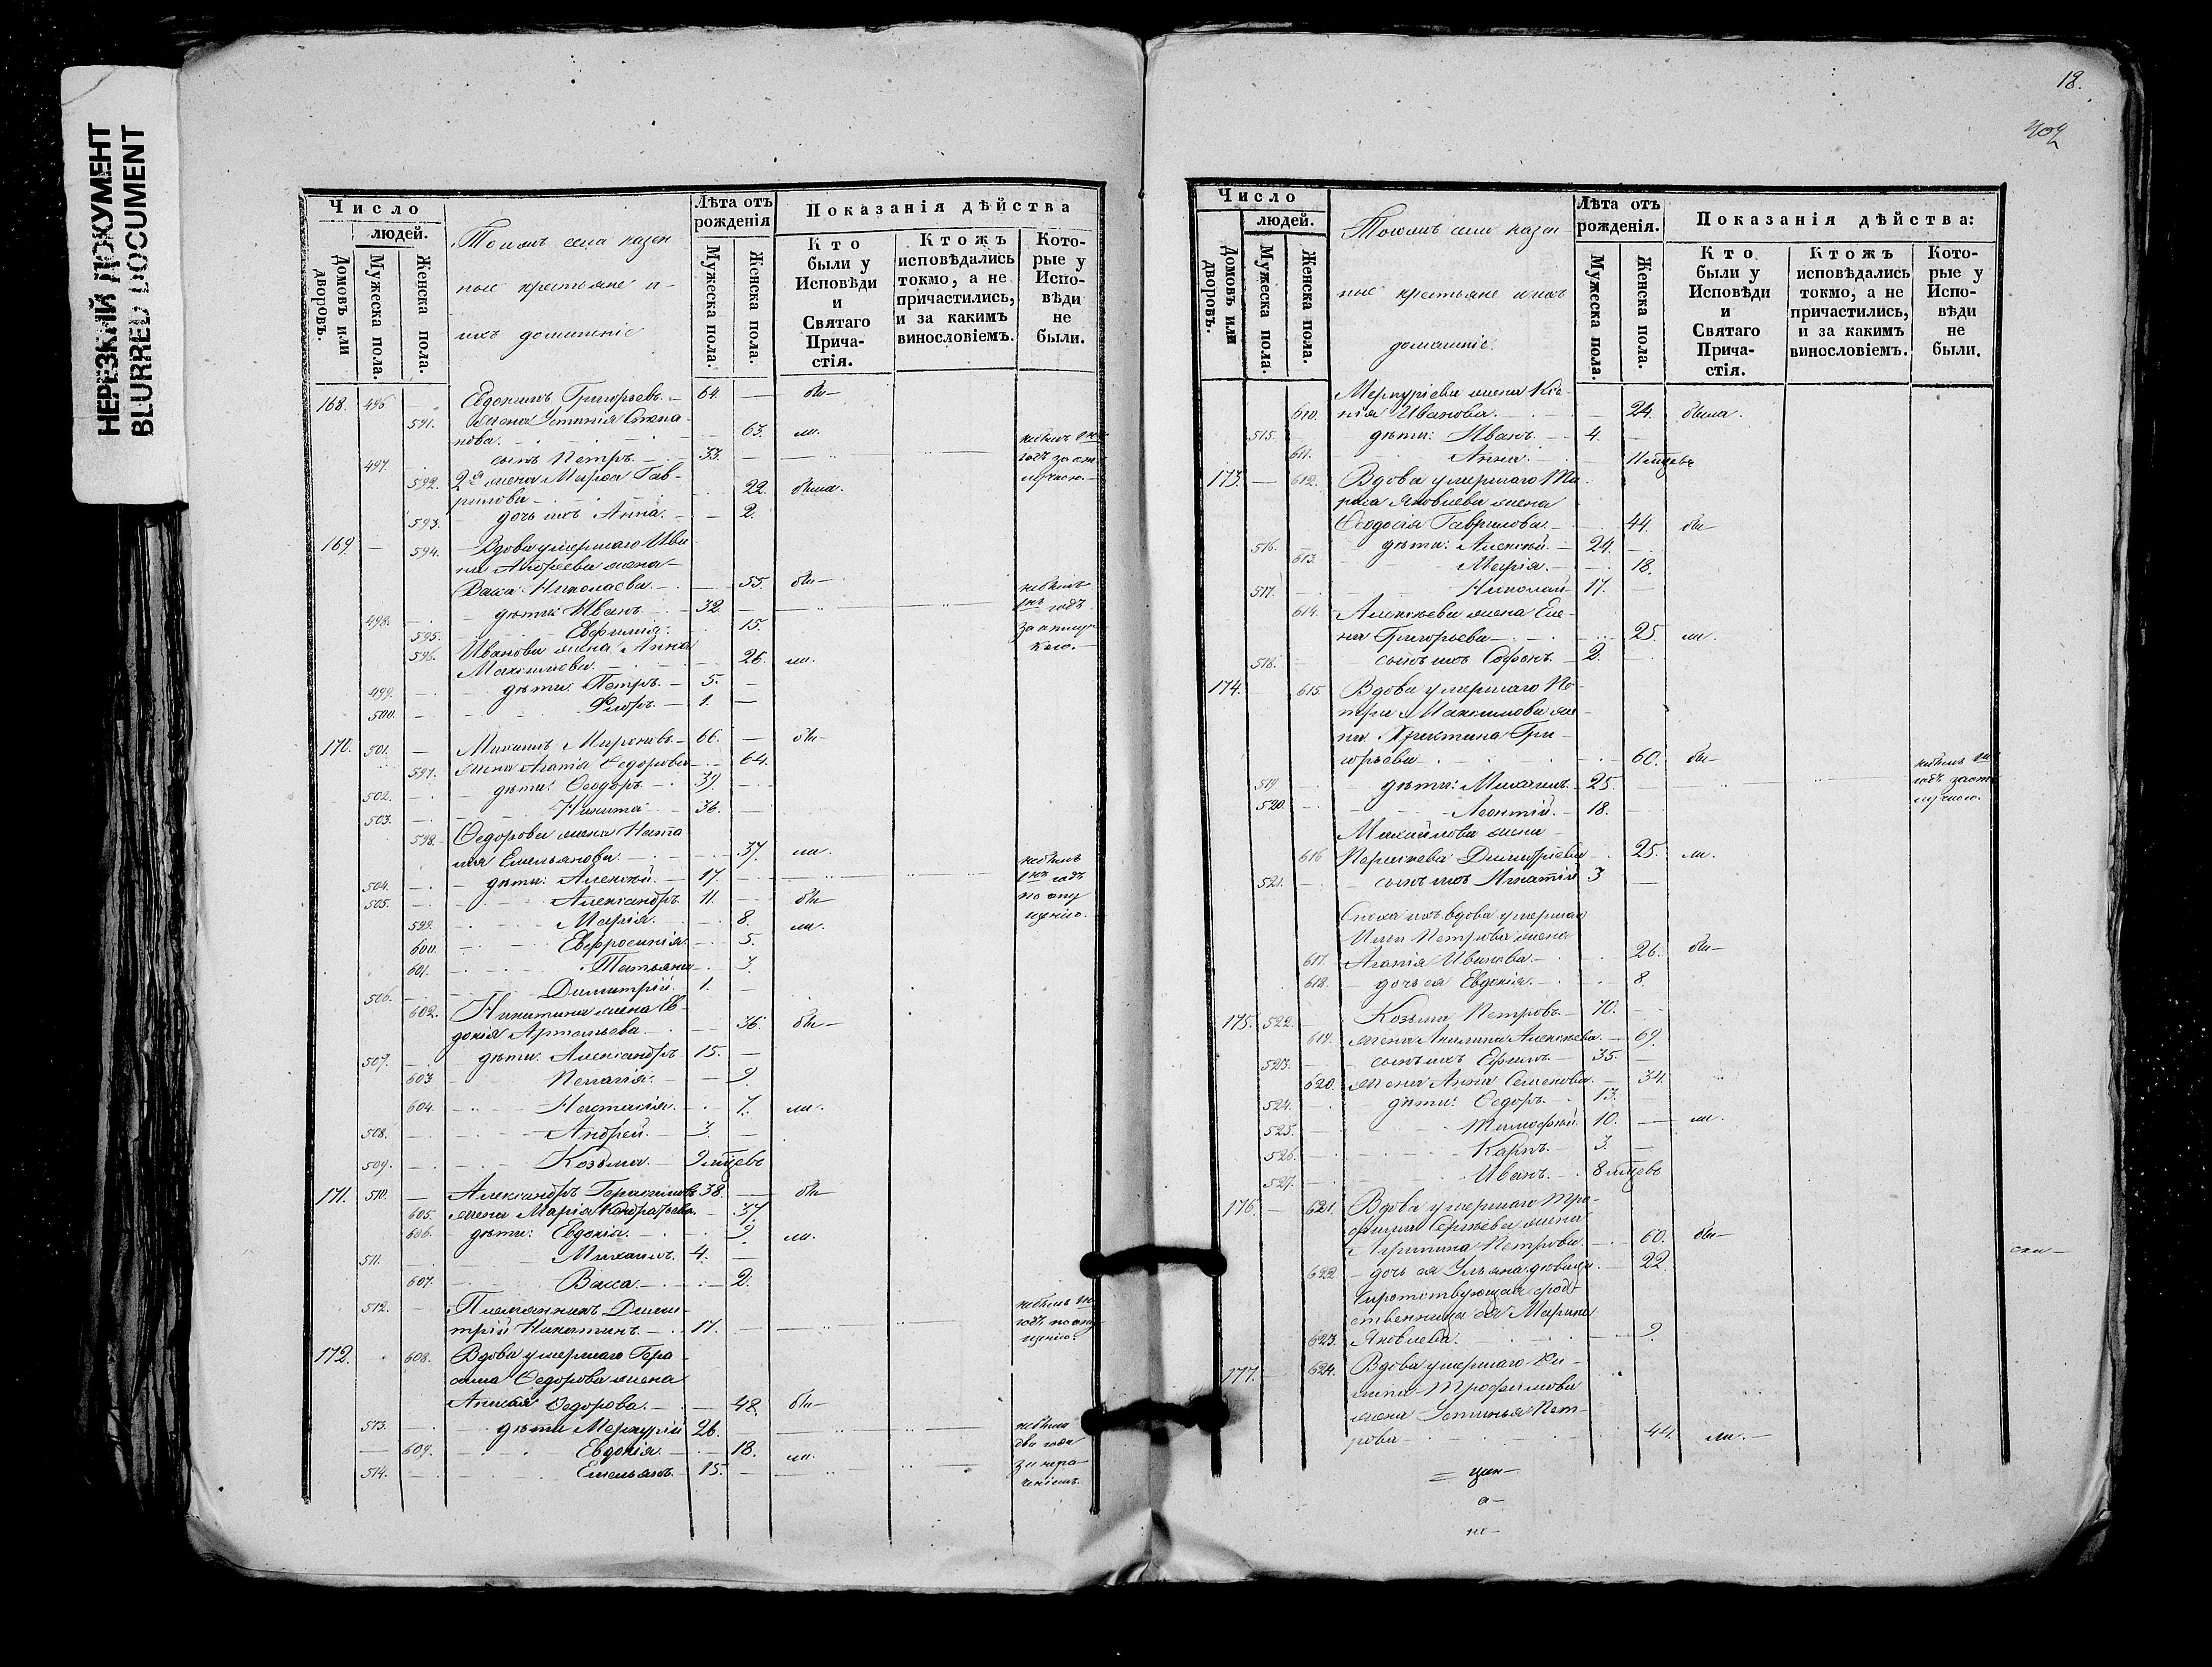 НЕРЕЗКИЙ ДОКУМЕНТ
BLURRED DOCUMENT
Число
людей.
Домовъ или дворовъ.
Мужеска пола.
Женска пола.
казен
ные крестьяне и
ихъ домашніе
Лѣта отъ рожденія
Мужеска пола.
Женска пола.
Показанія дѣйства
Кто были у Исповѣди и Святаго Прича-стія.
Ктожъ исповѣдались токмо, а не причастились, и за какимъ винословіемъ.
Кото-рые у Испо-вѣди не были.
168. 496. Евдокимъ Григорьевъ 64. бы
591. жена Устинія Степа
нова. 63. ли.
497. сынъ Петръ. 33. небылъ
592. 2я жена Марѳа Гав-
рилова 22. была.
593. дочь ихъ Анна. 2.
169. 594. Вдова умершаго Ива
на Андреева жена
Васса Николаева. 55. бы
498. дѣти: Иванъ. 32.
595. Евфимія. 15.
596. Иванова жена Анна
Максимова. 26. ли.
499. дѣти: Петръ. 5.
500. 1.
170. 501. Михаилъ Мироновъ 66. бы
597. жена Агапія Ѳедорова 64.
502. дѣти: Ѳеодоръ 39.
503. Никита 36.
598. Ѳедорова жена Ната
лія Емельянова. 37. ли.
504. дѣти: Алексѣй. 17.
505. Александръ 11. бы
599. Марія. 8. ли.
600. Евфросинія 5.
601. Татьяна 3.
506. Димитрій. 1.
602. Никитина жена Ев-
докія Артемьева. 36. бы
507. дѣти: Александръ 15.
603. Пелагія. 9.
604. Настасія. 7. ли.
508. Андрей. 3.
509. Козьма. 9 мцевъ
171. 510. Александръ Герасимовъ 38. бы
605. жена Марія Кондратьева. 37.
606. дѣти: Евдокія. 9. ли.
511. Михаилъ. 4.
607. Васса. 2.
512. Племянникъ Дими-
трій Никитинъ. 17.
172. 608. Вдова умершаго Гера-
сима Ѳедорова жена
Ѳедорова. 48. бы
513. дѣти Меркурій 26.
609. Евдокія. 18. ли.
514. Емельянъ. 15.
18.
Число
людей.
Домовъ или дворовъ.
Мужеска пола.
Женска пола.
казен
ные крестьяне и ихъ
домашніе.
Лѣта отъ рожденія.
Мужеска пола.
Женска пола.
Показанія дѣйства:
Кто были у Исповѣди и Святаго Прича-стія.
Ктожъ исповѣдались токмо, а не причастились, и за какимъ винословіемъ.
Кото-рые у Испо-вѣди не были.
Меркуріева жена Ксе-
610. нія Иванова. 24. была.
515. дѣти: Иванъ. 4.
611. Анна. 11 мцевъ
173. 612. Вдова умершаго
Яковлева жена
Ѳеодосія Гаврилова. 44. бы
516. дѣти: Алексѣй. 24.
613. Марія. 18.
517. Николай 17.
614. Алексѣева жена Еле-
на Григорьева 25. ли.
518. сынъ ихъ Софонъ. 2.
174. 615. Вдова умершаго Пе-
тра Максимова же
на Христина Гри-
горьева 60. бы
519. дѣти: Михаилъ. 25.
520. Леонтій. 18.
Михайлова жена
616 Димитріева 25. ли.
521. сынъ ихъ Игнатій 3
Сноха ихъ вдова умерша
Ильи Петрова жена
617. Агапія Иванова. 26. бы
618. дочь ея Евдокія. 8.
175. 522. Козьма Петровъ. 70.
619. жена Акилина Алексѣева. 69.
523. сынъ ихъ Ефимъ 35.
620. жена Анна Семенова. 34.
524. дѣти: Ѳедоръ. 13.
525. Тимоѳей. 10. ли.
526. Карпъ. 3.
527. Иванъ. 8 мцевъ
176. 621. Вдова умершаго Тро-
фима Сергѣева жена
Петрова. 60. бы
622 дочь ея Ульяна дѣвица. 22.
Сиротствующая род-
ственница ея Марина
623. Яковлева. 9.
177. 624. Вдова умершаго Фи-
липа Трофимова
жена Устинья Пет-
рова 44. ли.